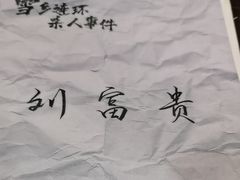 雪乡连环
杀人事件
刘富贵